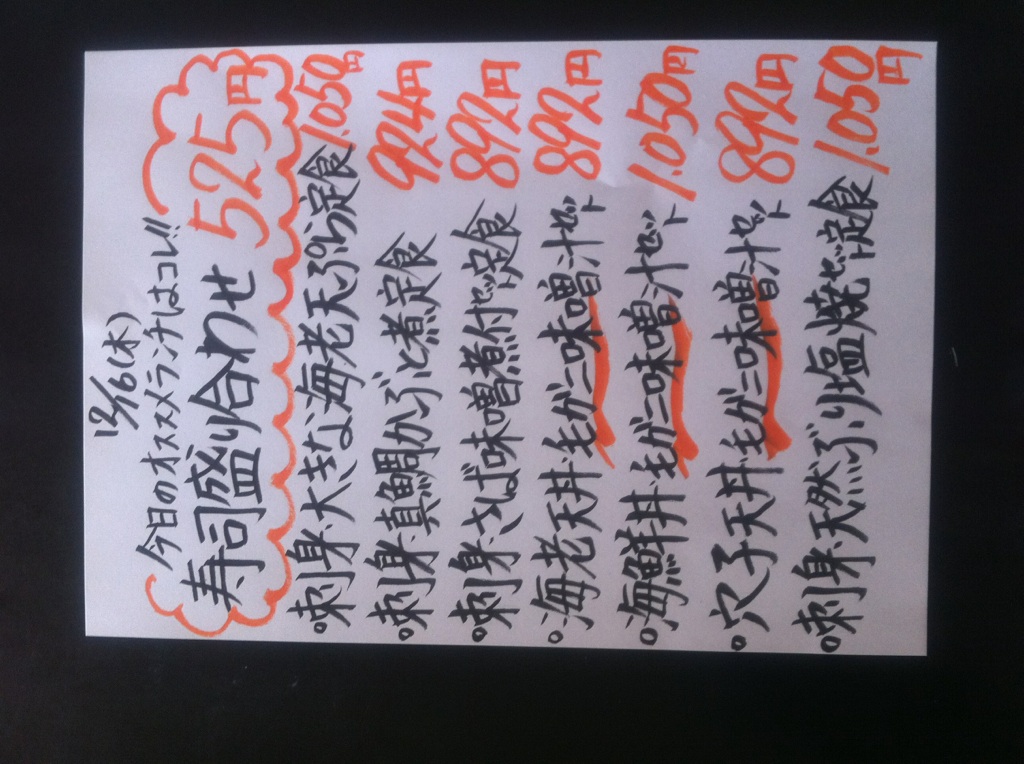 12/16(木)
今日のオススメランチはコレ!!
寿司盛り合わせ 525円
。刺身・大きな海老天ぷら定食 1.050円
。刺身・真鯛かぶと煮定食 924円
。刺身・さば味噌煮付セット定食 892円
。海老天丼・毛がニ味噌汁セット 892円
。海鮮丼・毛がニ味噌汁セット 1.050円
。穴子天丼・毛がニ味噌汁セット 892円
。刺身・天然ぶり塩焼セット定食 1.050円